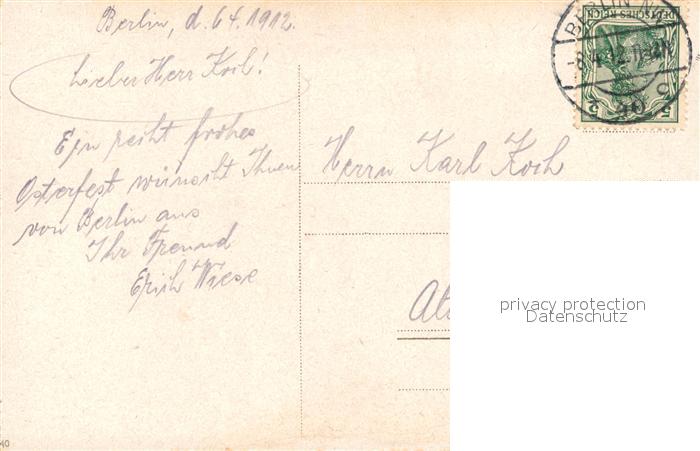 Berlin, d. 6 4. 1912.
Lieber Herr Koch!
Ein recht frohes
Osterfest wünscht Ihnen
von Berlin aus
Ihr Freund
Erich Wiese
Herrn Karl Koch
BERLIN N.
DEUTSCHES REICH
40
privacy protection
Datenschutz